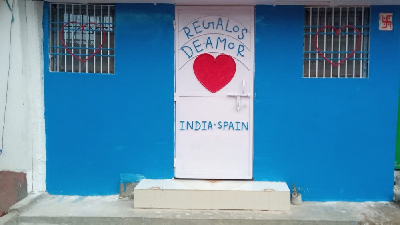 REGALOS
DE AMOR
INDIA-SPAIN